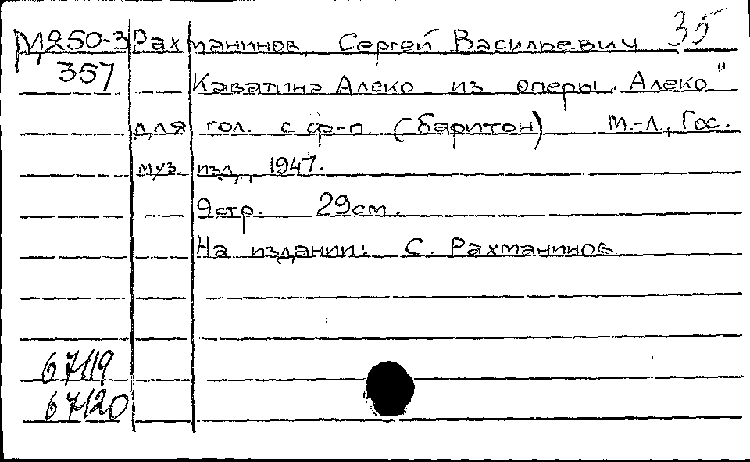 М250-3 Рахманинов, Сергей Васильевич 35
357 Каватина Алеко из оперы „Алеко"
для гол. с ф-п (баритон) М.-Л., Гос.
муз. изд., 1947.
9стр. 29см.
На издании: С. Рахманинов
67119
67120